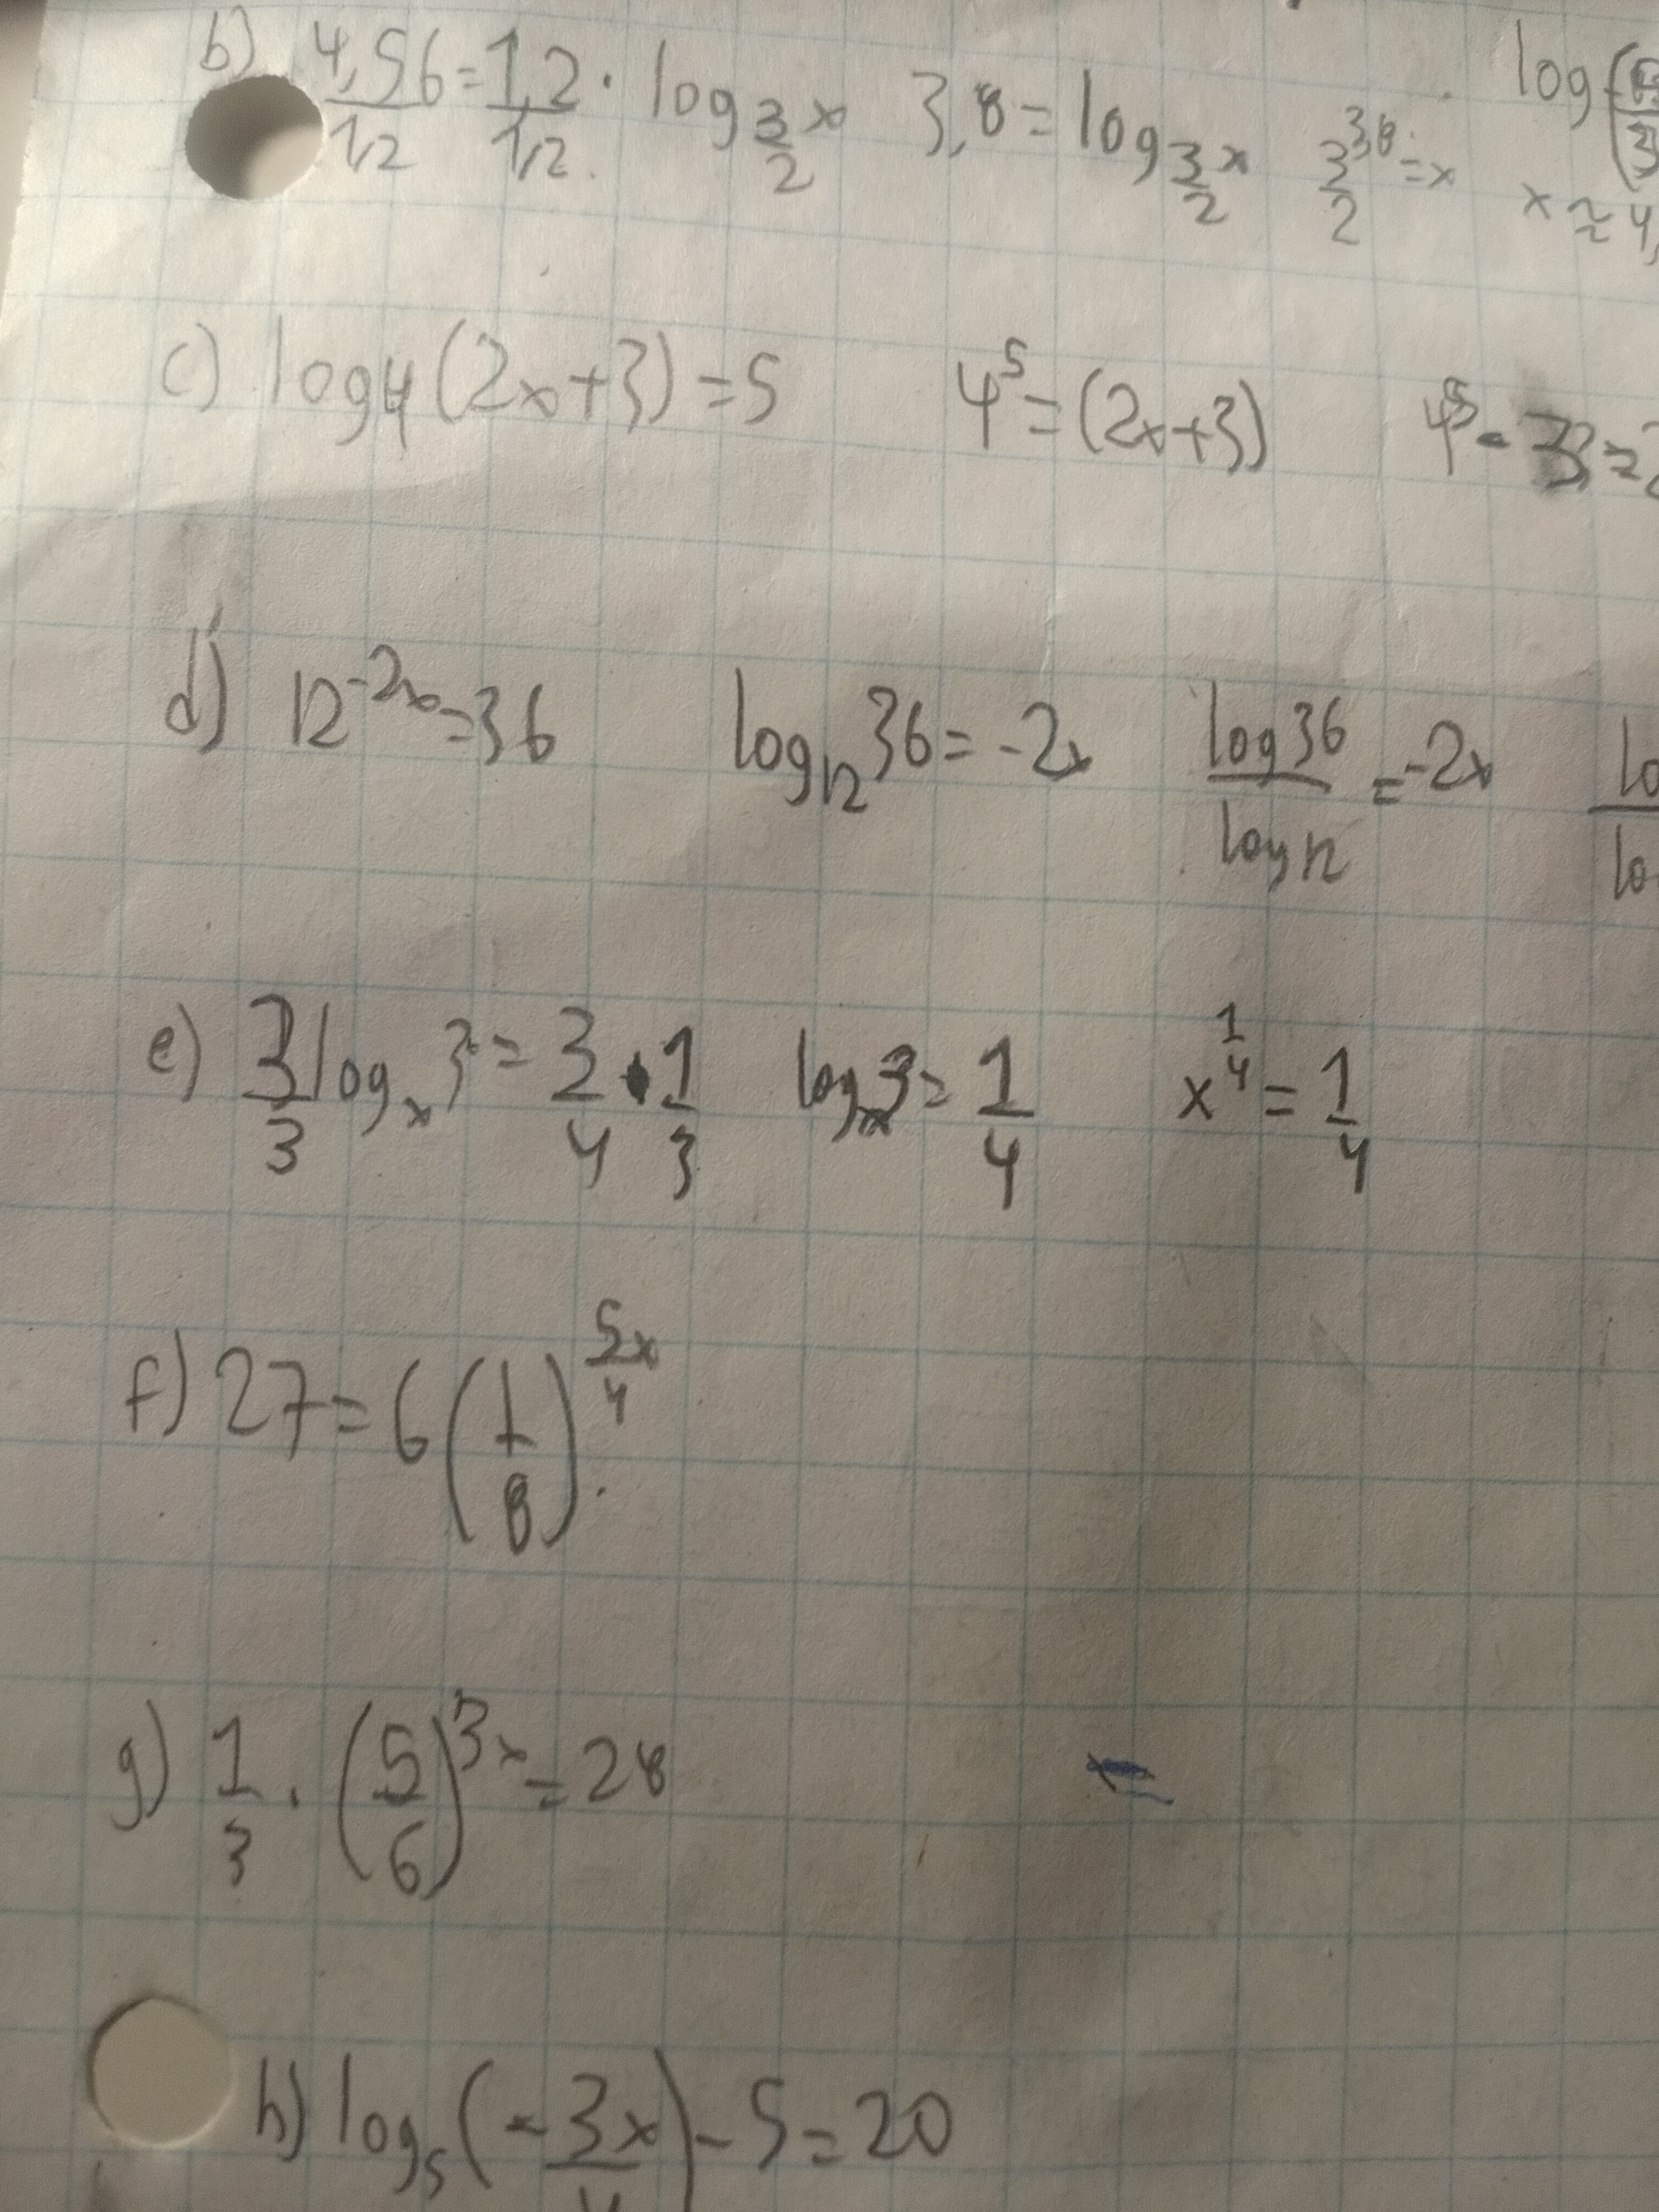 b) 4,56/1,2 = 1,2/1,2 · log_{3/2} x    3,8 = log_{3/2} x    3/2^{3,8} = x    log    x ≈ 4,
c) log₄(2x+3) = 5    4⁵ = (2x+3)    4⁵ - 3 = 2
d) 12^{-2x} = 36    log₁₂ 36 = -2x    log 36/log 12 = -2x    lo/lo
e) 3/3 log_x 3 = 3/4 · 1/3    log_x 3 = 1/4    x^{1/4} = 1/4
f) 27 = 6(1/8)^{5x/4}
g) 1/3 · (5/6)^{3x} = 28
h) log₅(-3x/4) - 5 = 20